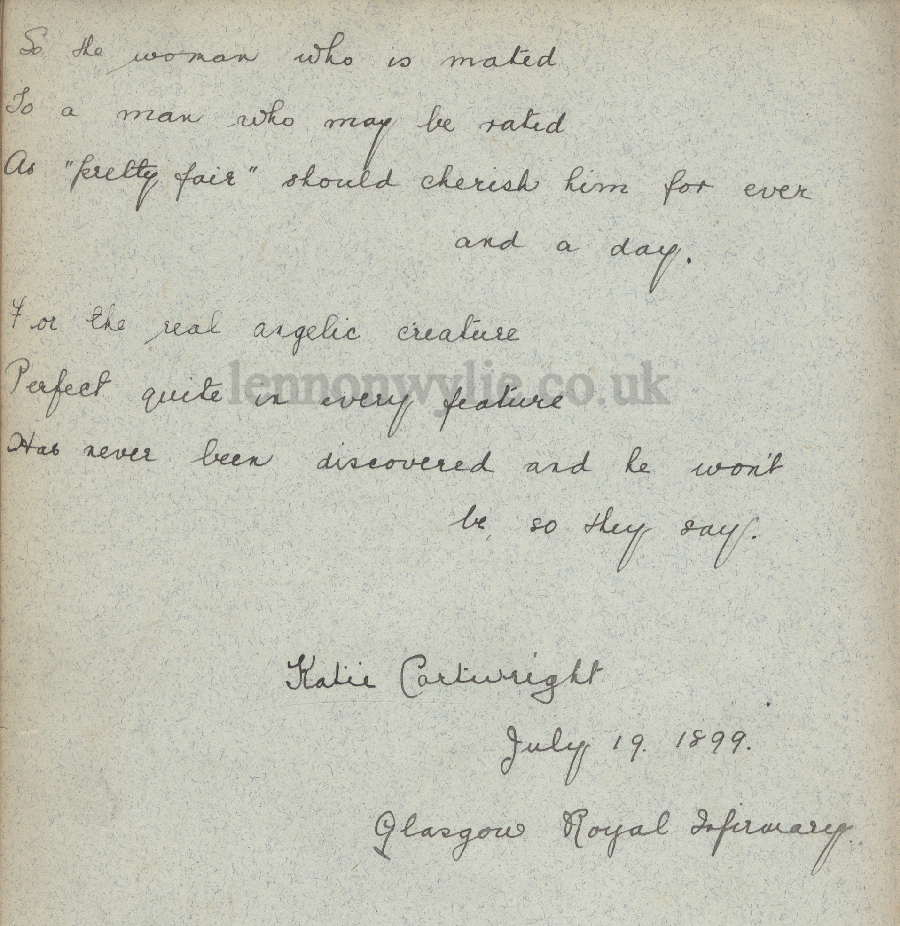 So the woman who is mated
To a man who may be rated
As "pretty fair" should cherish him for ever
and a day.
For the real angelic creature
Perfect quite in every feature
lennonwylie.co.uk
Has never been discovered and he won't
be, so they say.
Katie Cartwright
July 19. 1899.
Glasgow Royal Infirmary.